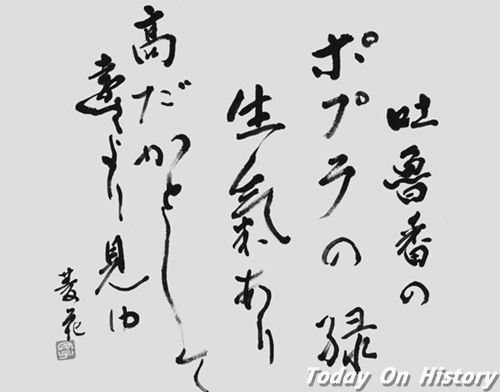 吐魯番の
ポプラの緑
生氣あり
高だかとして
遠くより見ゆ
Today On History